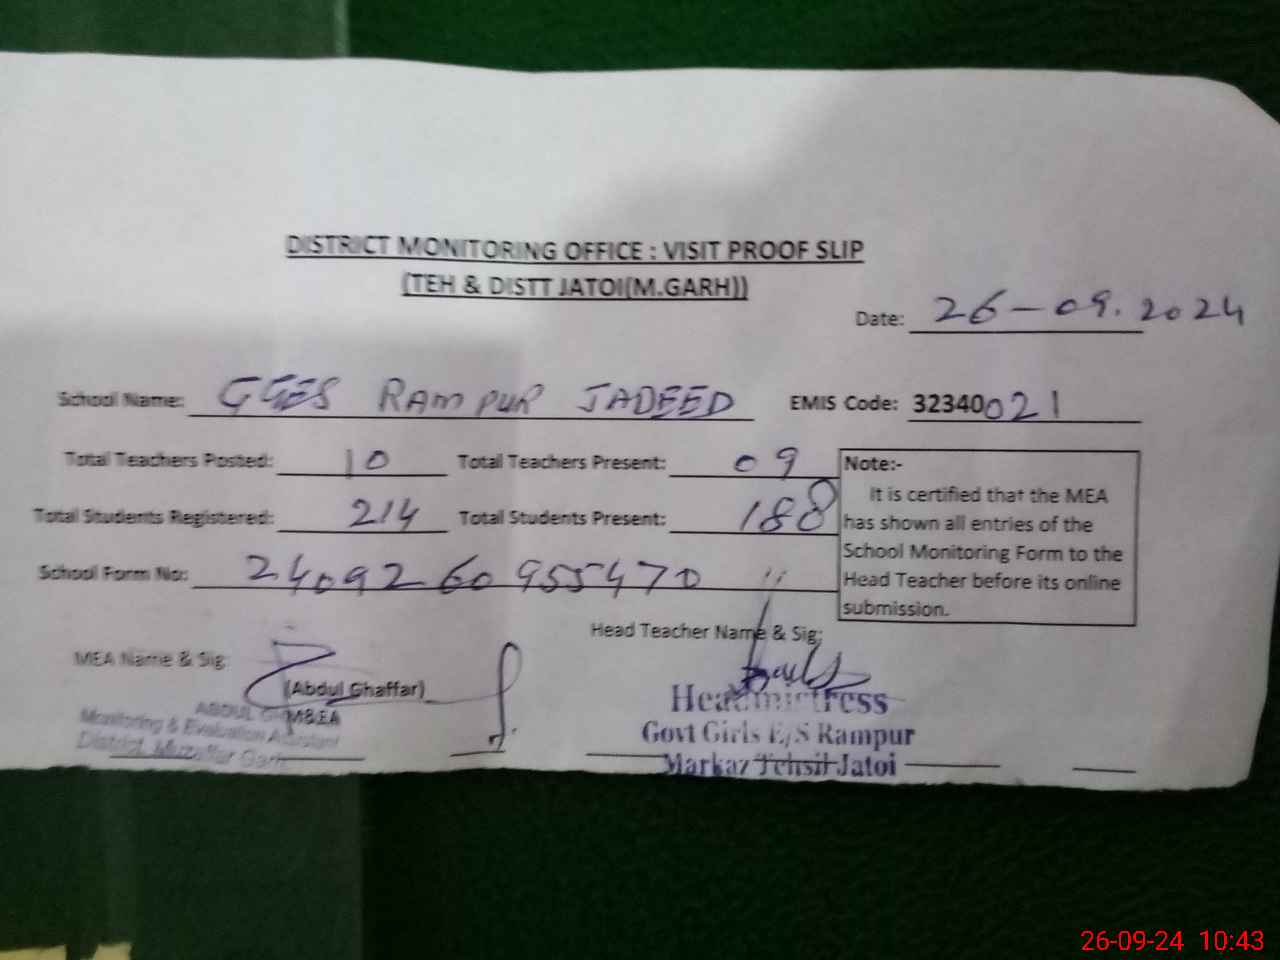 DISTRICT MONITORING OFFICE : VISIT PROOF SLIP
(TEH & DISTT JATOI(M.GARH))
Date: 26-09.2024
School Name: GGES RAMPUR JADEED EMIS Code: 32340021
Total Teachers Posted: 10 Total Teachers Present: 09
Total Students Registered: 214 Total Students Present: 188
School Form No: 2409260955470
Note:-
It is certified that the MEA
has shown all entries of the
School Monitoring Form to the
Head Teacher before its online
submission.
MEA Name & Sig:
(Abdul Ghaffar)
M&EA
ABDUL
Monitoring & Evaluation Assistant
District, Muzaffar Garh
Head Teacher Name & Sig:
Headmistress
Govt Girls E/S Rampur
Markaz Tehsil Jatoi
26-09-24 10:43